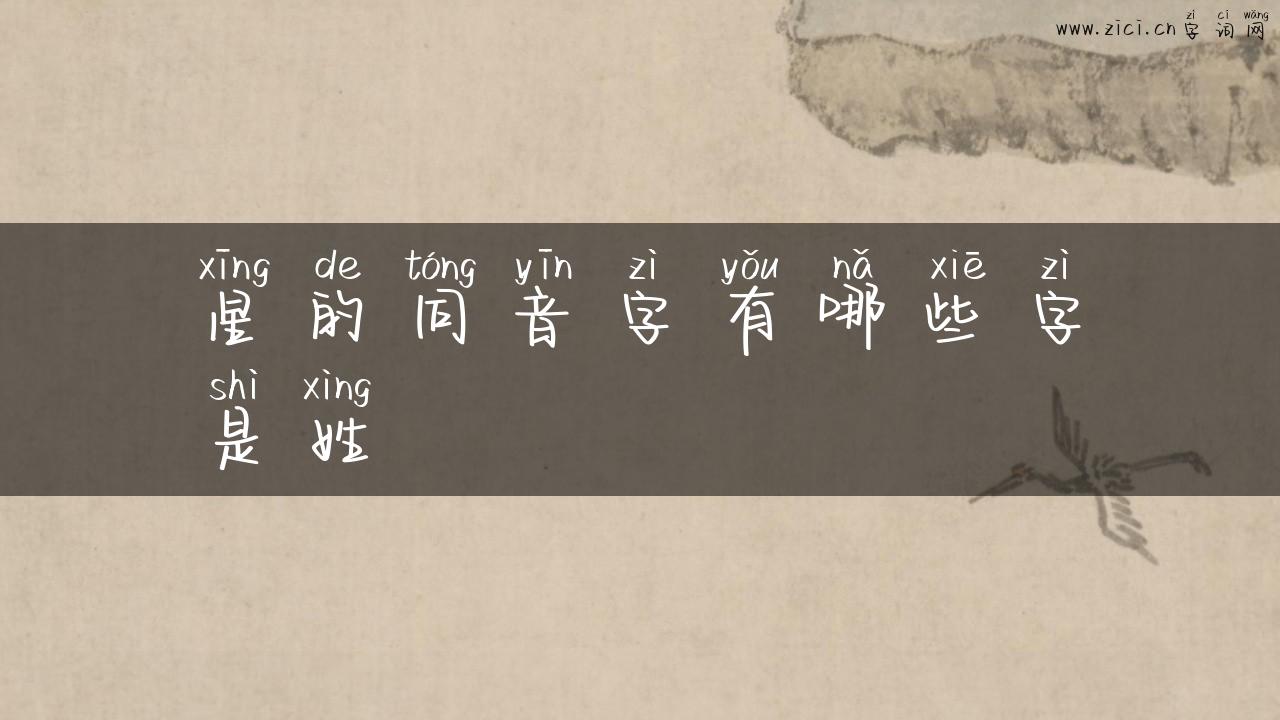 zì cí wǎng
www.zici.cn 字词网
xīng de tóng yīn zì yǒu nǎ xiē zì
星的同音字有哪些字
shì xìng
是姓